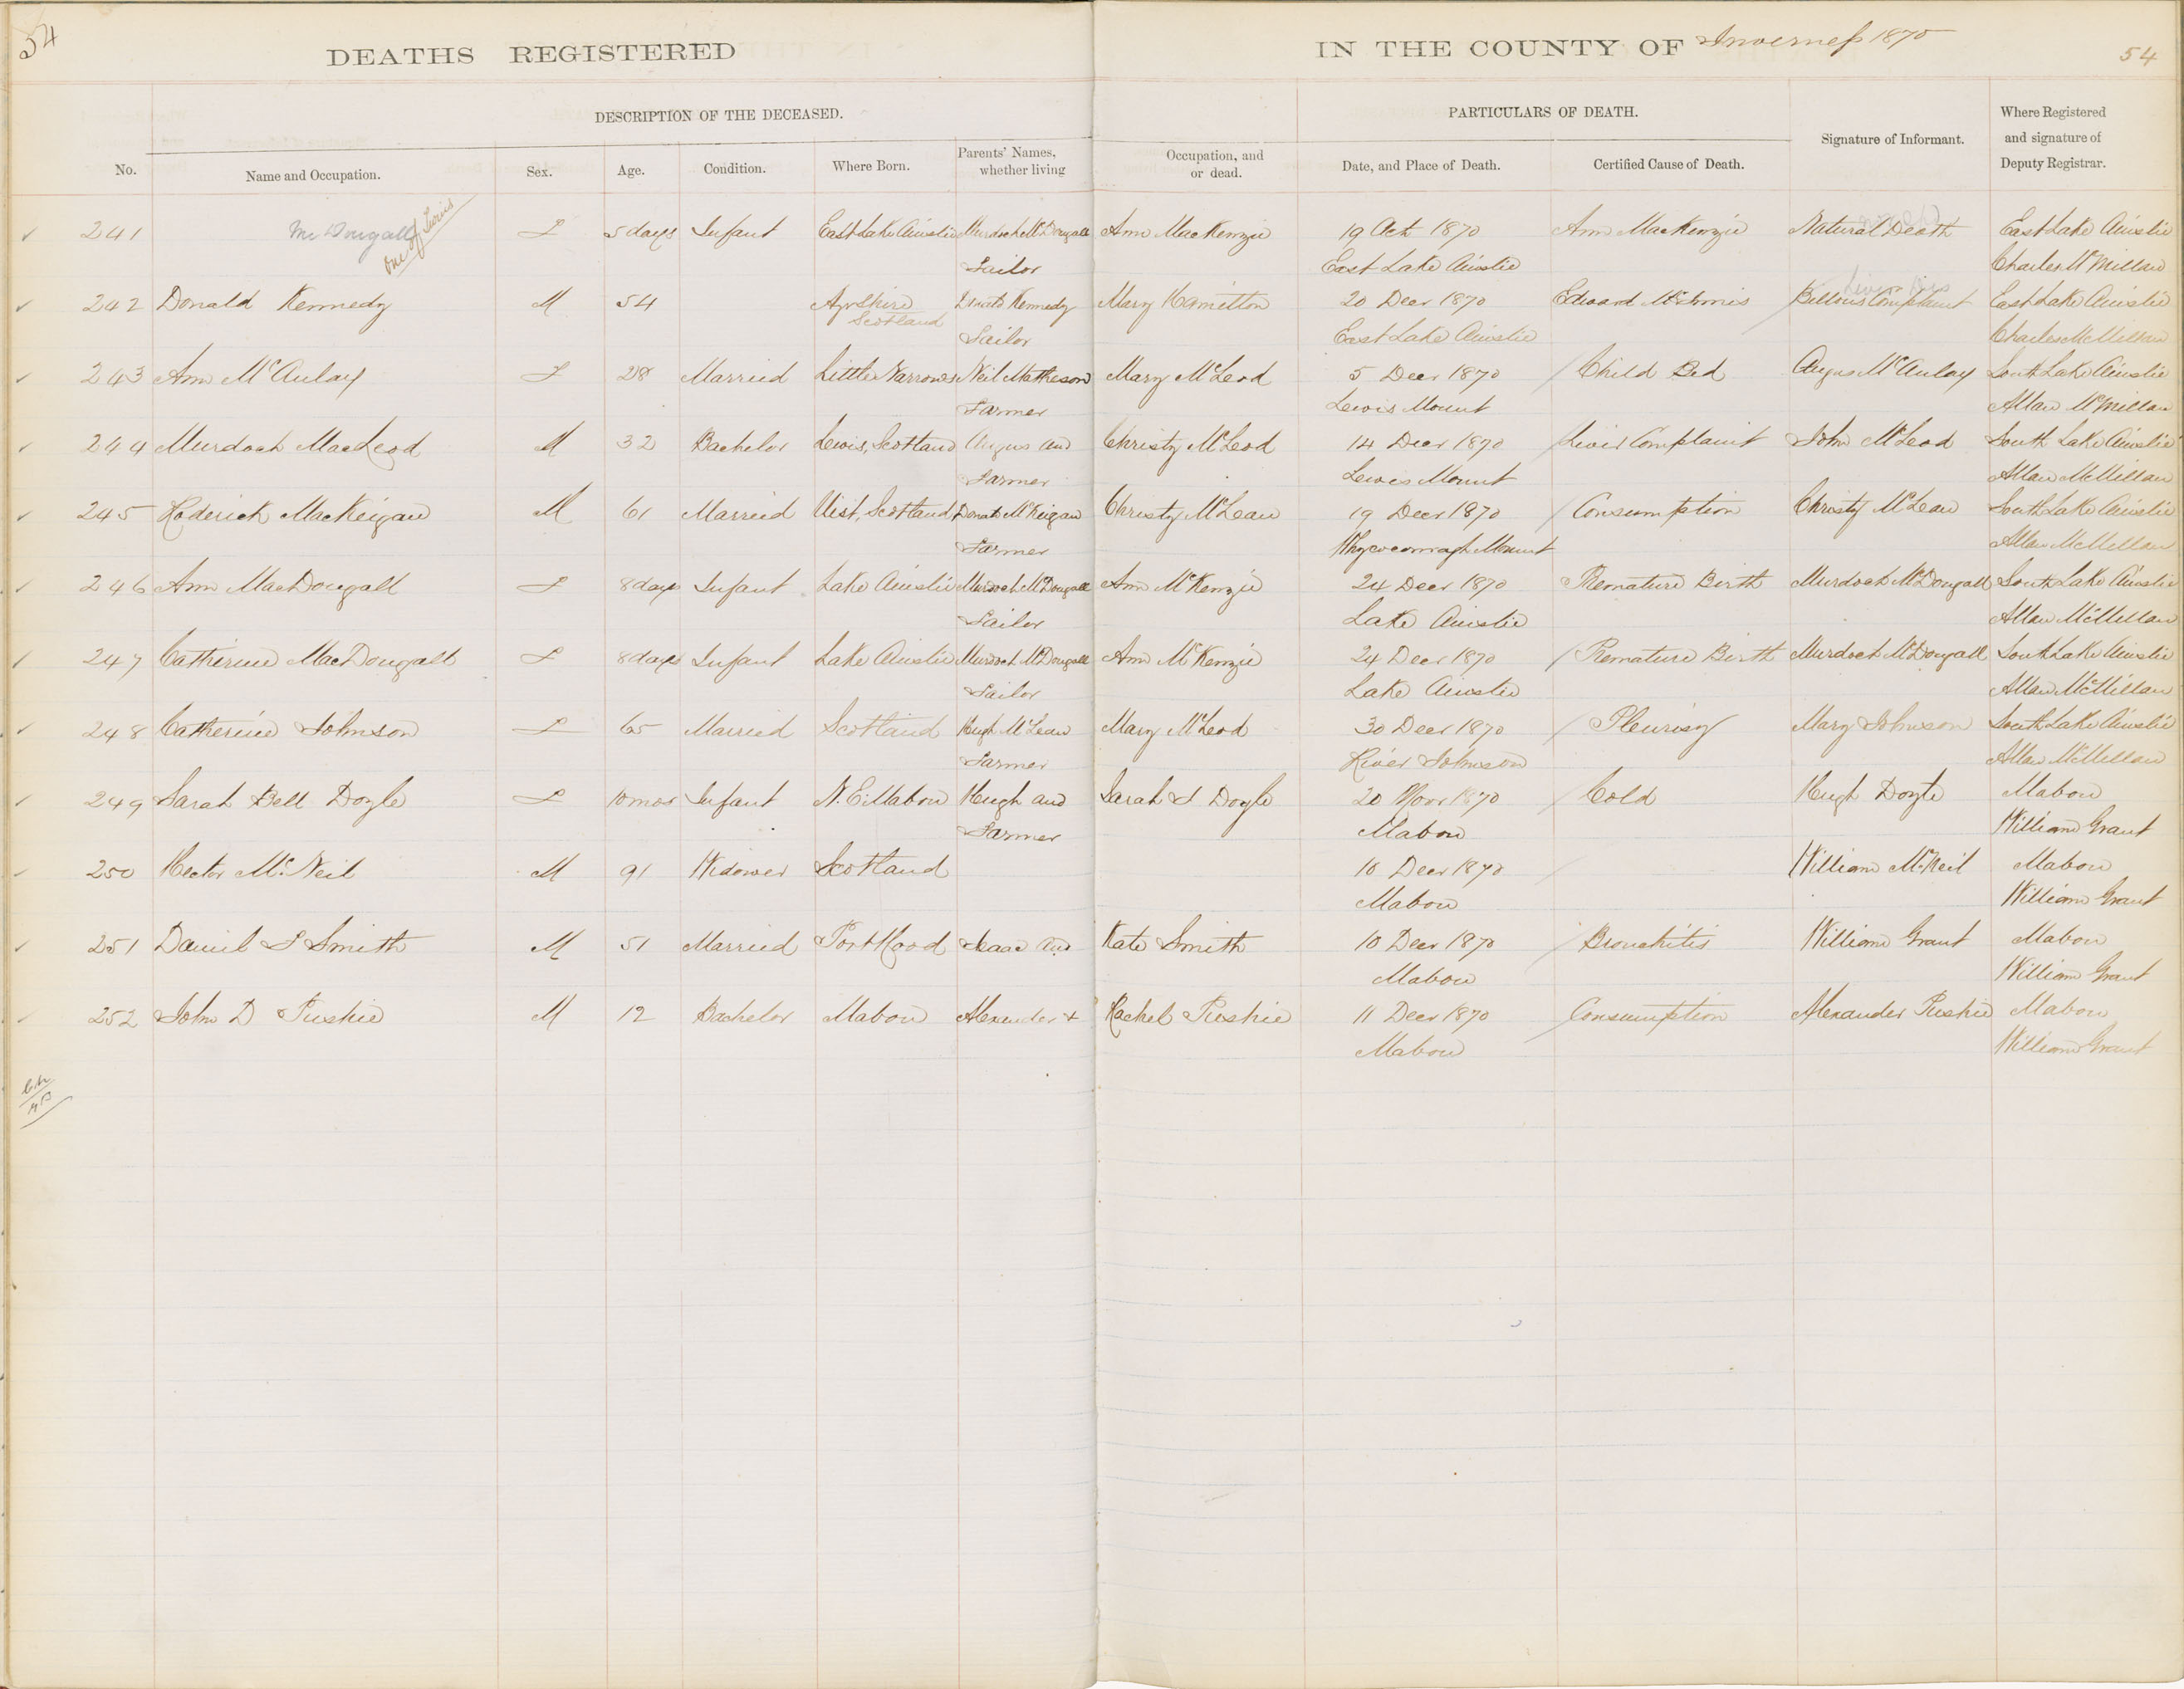 54
DEATHS REGISTERED IN THE COUNTY OF Inverness 1870
54
DESCRIPTION OF THE DECEASED. PARTICULARS OF DEATH.
No. Name and Occupation. Sex. Age. Condition. Where Born. Parents' Names, whether living Occupation, and or dead. Date, and Place of Death. Certified Cause of Death. Signature of Informant. Where Registered and signature of Deputy Registrar.
241 McDougall one of Twins F 5 days Infant East Lake Ainslie Murdoch McDougall Ann MacKenzie 19 Oct 1870 Ann MacKenzie Natural Death East Lake Ainslie
Tailor East Lake Ainslie Charles McMillan
242 Donald Kennedy M 54 Ayrshire Scotland Donald Kennedy Mary Hamilton 20 Decr 1870 Edward McInnis Billous Complaint East Lake Ainslie
Tailor East Lake Ainslie Charles McMillan
243 Ann McAulay F 28 Married Little Narrows Neil Matheson Mary McLeod 5 Decr 1870 Child Bed Angus McAulay South Lake Ainslie
Farmer Lewis Mount Allan McMillan
244 Murdoch MacLeod M 32 Bachelor Lewis, Scotland Angus and Christy McLeod 14 Decr 1870 Liver Complaint John McLeod South Lake Ainslie
Farmer Lewis Mount Allan McMillan
245 Roderick MacKeigan M 61 Married Uist, Scotland Donald McKeigan Christy McLean 19 Decr 1870 Consumption Christy McLean South Lake Ainslie
Farmer Whycocomagh Mount Allan McMillan
246 Ann MacDougall F 8 days Infant Lake Ainslie Murdoch McDougall Ann McKenzie 24 Decr 1870 Premature Birth Murdoch McDougall South Lake Ainslie
Tailor Lake Ainslie Allan McMillan
247 Catherine MacDougall F 8 days Infant Lake Ainslie Murdoch McDougall Ann McKenzie 24 Decr 1870 Premature Birth Murdoch McDougall South Lake Ainslie
Tailor Lake Ainslie Allan McMillan
248 Catherine Johnson F 65 Married Scotland Hugh McLean Mary McLeod 30 Decr 1870 Pleurisy Mary Johnson South Lake Ainslie
Farmer River Johnson Allan McMillan
249 Sarah Bell Doyle F 10 mos Infant N. E. Mabou Hugh and Sarah J Doyle 20 Novr 1870 Cold Hugh Doyle Mabou
Farmer Mabou William Grant
250 Hector McNeil M 91 Widower Scotland 10 Decr 1870 William McNeil Mabou
Mabou William Grant
251 Daniel S Smith M 51 Married Port Hood Isaac and Kate Smith 10 Decr 1870 Bronchitis William Grant Mabou
Mabou William Grant
252 John D Puskie M 12 Bachelor Mabou Alexander + Rachel Puskie 11 Decr 1870 Consumption Alexander Puskie Mabou
Mabou William Grant